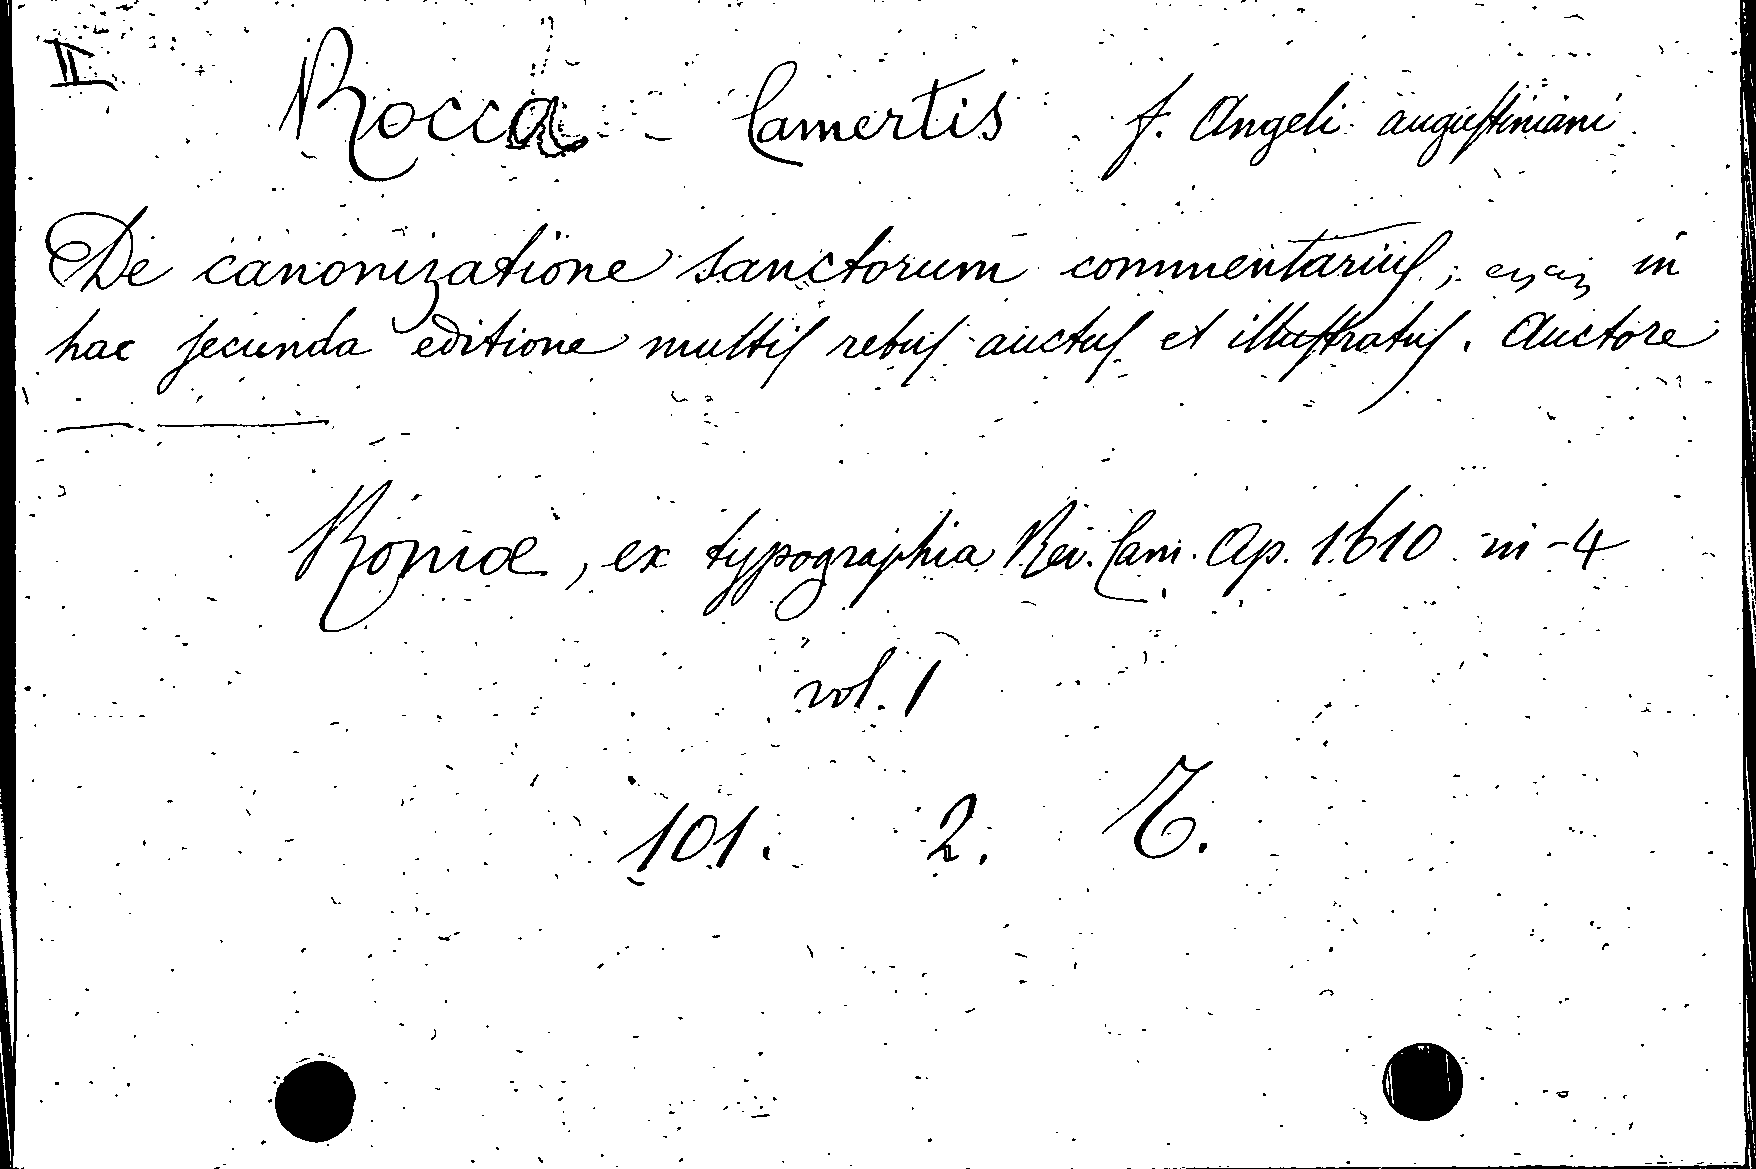 II
Rocca - Camertis f. Angeli augustiniani
De canonizatione sanctorum commentarius; in
hac secunda editione multis rebus auctus et illustratus. Auctore
———
Romæ, ex typographia Rev. Cam. Ap. 1610 in-4
vol. 1
101. 2.